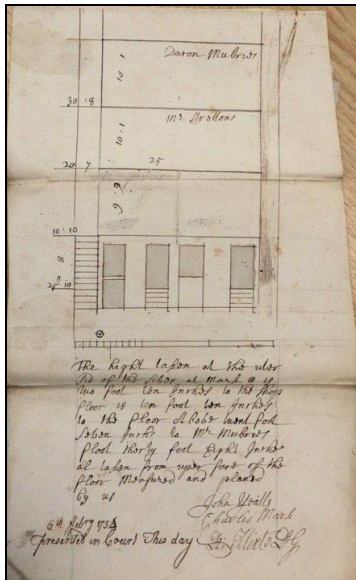 Daron Mubries
10 . 1
30 . 8
Mr
10 . 1
20 . 7
25
9 . 9
10 : 10
8
2 10
The hight taken at the uter
Sid of the Siber at mark is
two foot ten Inches to the Shop
floor is ten foot ten Inches
to the floor above twent foot
Seven Inchs to Mr Mubries
floot therty foot Eight Inches
all taken from uper for of the
floor Mesured and planed
by us
John
Charles Mack
6th febry 1754
presented in Court This day